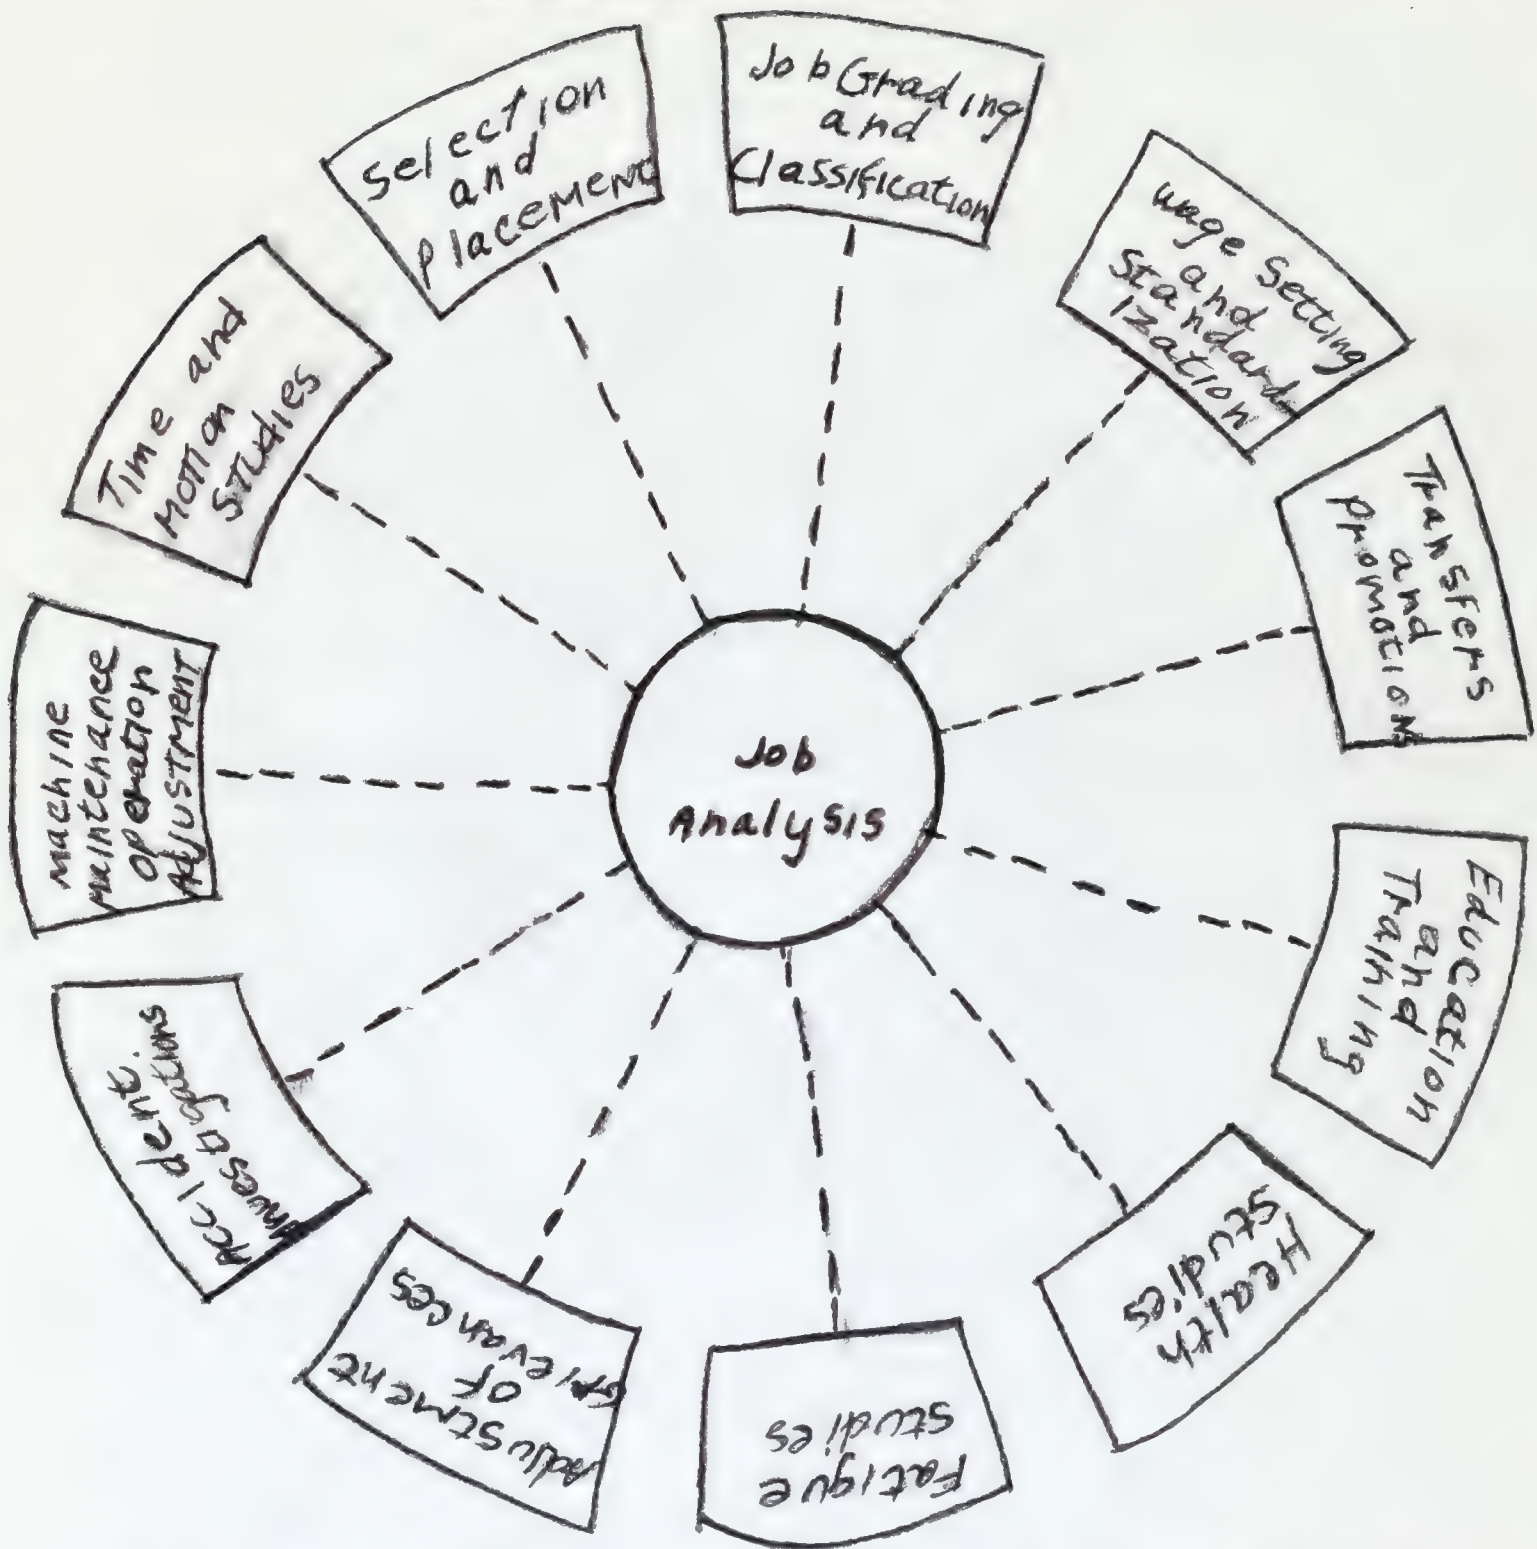 Job Grading
and
Classification
Wage Setting
and
Standard
ization
Transfers
and
Promotions
Education
and
Training
Health
Studies
Fatigue
Studies
Adjustment
of
Grievances
Accident
Investigations
Machine
Maintenance
Operation
Adjustment
Time and
Motion
Studies
Selection
and
Placement
Job
Analysis